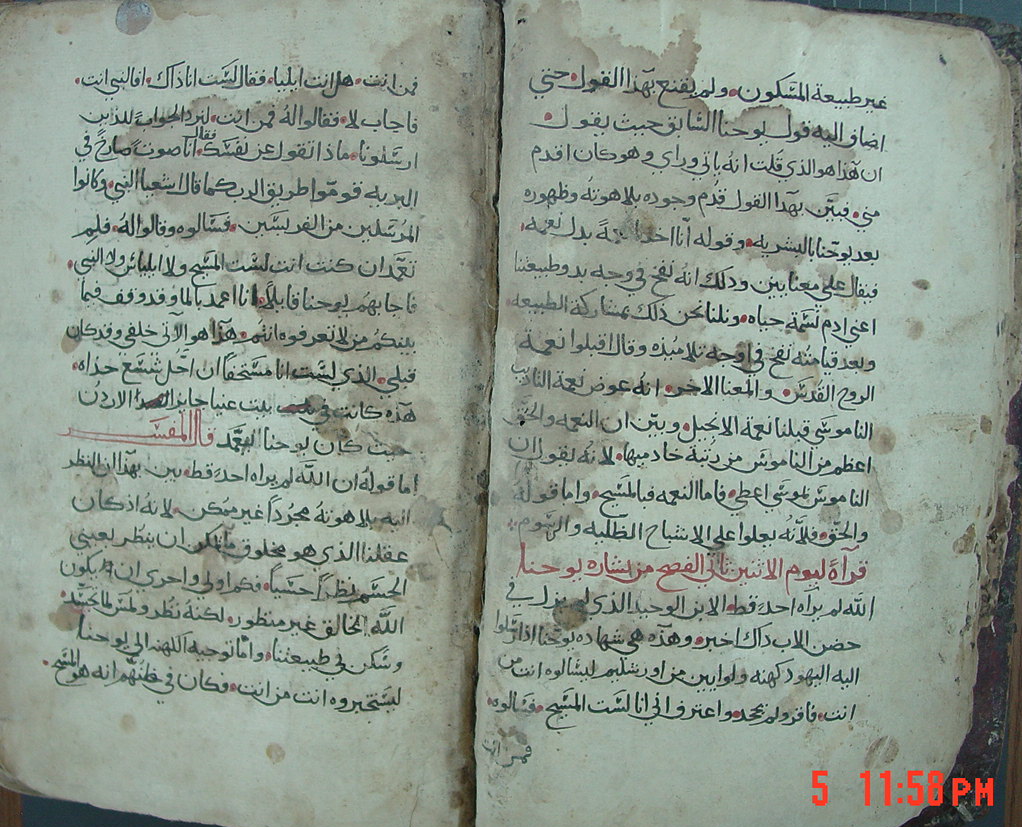 غير طبيعة المسكون، ولم يقنع بهذا القول حتي
اضاف اليه قول يوحنا السابق حيث يقول
ان هذا هو الذي قلت انه ياتي وراي وهو كان اقدم
مني، فبيّن بهذا القول قدم وجوده بلاهوته وظهوره
بعد يوحنا بالبشريه، وقوله انا اخدنا نعمةً بدل نعمه،
فيقال علي معنايين ودلك انه نفخ في وجه بدو طبيعتنا
اعني ادم نسمة حياه، ونلنا نحن دلك بمشاركة الطبيعه
وبعد قيامته نفخ في اوجه تلاميذه وقال اقبلوا نعمة
الروح القدس، والمعنا الاخر، انه عوض نعمة الناديب
الناموسي قبلنا نعمة الانجيل، وبيّن ان النعمه والحق
اعظم من الناموس من رتبة خادميها، لانه يقول ان
الناموس بموسي اعطي، فاما النعمه فبالمسيح، واما قوله
والحق، فلانه يعلوا علي الاشباح الظليه والرسوم،
قرآة ليوم الاثنين تاني الفصح من بشاره يوحنا
الله لم يراه احدٌ قط، الابن الوحيد الذي لم يزل في
حضن الاب داك اخبر، وهذه هي شهاده يوحنا اذ ارسلوا
اليه اليهود كهنه ولوايين من اورشليم ليسالوه انت من
انت، فاقر ولم يجحد، واعترف اني انا لست المسيح، فسالوه،
فمن انت
فمن انت، هل انت ايليا، فقال لست انا داك، افالنبي انت،
فاجاب لا، فقالوا له فمن انت، لنرد الجواب للذين
ارسلونا، ماذا تقول عن نفسك، فقال انا صوت صارخ في
البريه قوموا طريق الرب كما قال اشعيا النبي، وكانوا
المرسلين من الفريسين، فسالوه وقالوا له، فلم
تعمد ان كنت انت لست المسيح ولا ايلياس ولا النبي،
فاجابهم يوحنا قايلاً، انا اعمد بالما وقد وقف فيما
بينكم من لا تعرفوه انتم، هذا هو الآتي خلفي وقد كان
قبلي، الذي لست انا مستحقاً ان احُل شسع حداه،
هذه كانت في بيت عنيا جايز الاردن
حيث كان يوحنا يعمّد قال المفسر
اما قوله ان الله لم يراه احدٌ قط، بين بهدا ان النظر
اليه بلاهوته مجرّداً غير ممكن، لانه اذ كان
عقلنا الذي هو مخلوق ما يمكن ان ينظر بعيني
الجسم نظراً حسّياً، فكم اولي واحري ان يكون
الله الخالق غير منظور، لكنه نظر ولمس لما تجسد
وسكن في طبيعتنا، وامّا توجيه الكهنه الي يوحنا
ليستخبروه انت من انت، فكان في ظنّهم انه هو المسيح،
5 11:58 PM